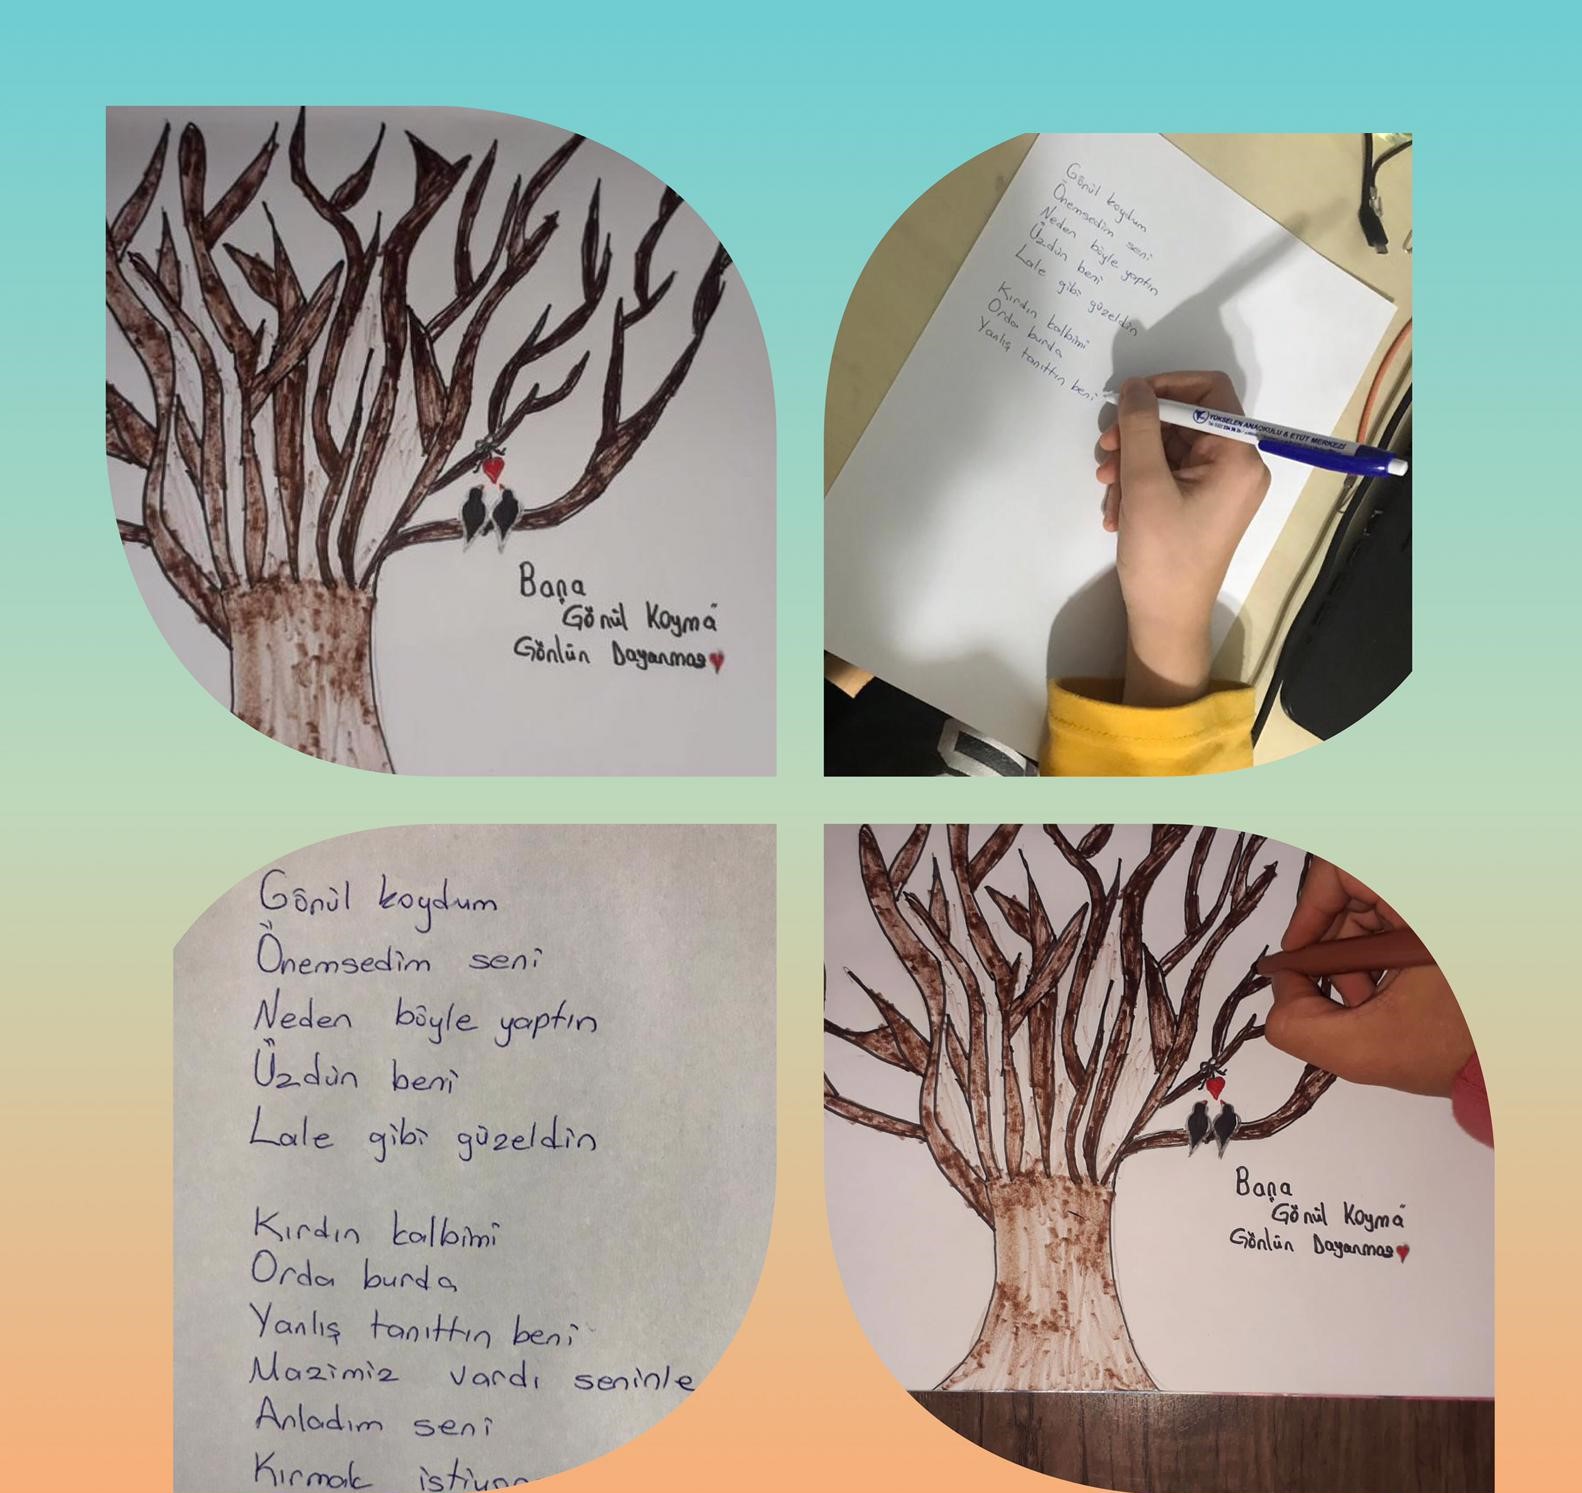 Bana
Gönül Koyma
Gönlün Dayanmaz
Gönül koydum
Önemsedim seni
Neden böyle yaptın
Üzdün beni
Lale gibi güzeldin
Kırdın kalbimi
Orda burda
Yanlış tanıttın beni
YÜKSELEN ANAOKULU & ETÜT MERKEZİ
Gönül koydum
Önemsedim seni
Neden böyle yaptın
Üzdün beni
Lale gibi güzeldin
Kırdın kalbimi
Orda burda
Yanlış tanıttın beni
Mazimiz vardı seninle
Anladım seni
Kırmak
Bana
Gönül Koyma
Gönlün Dayanmaz